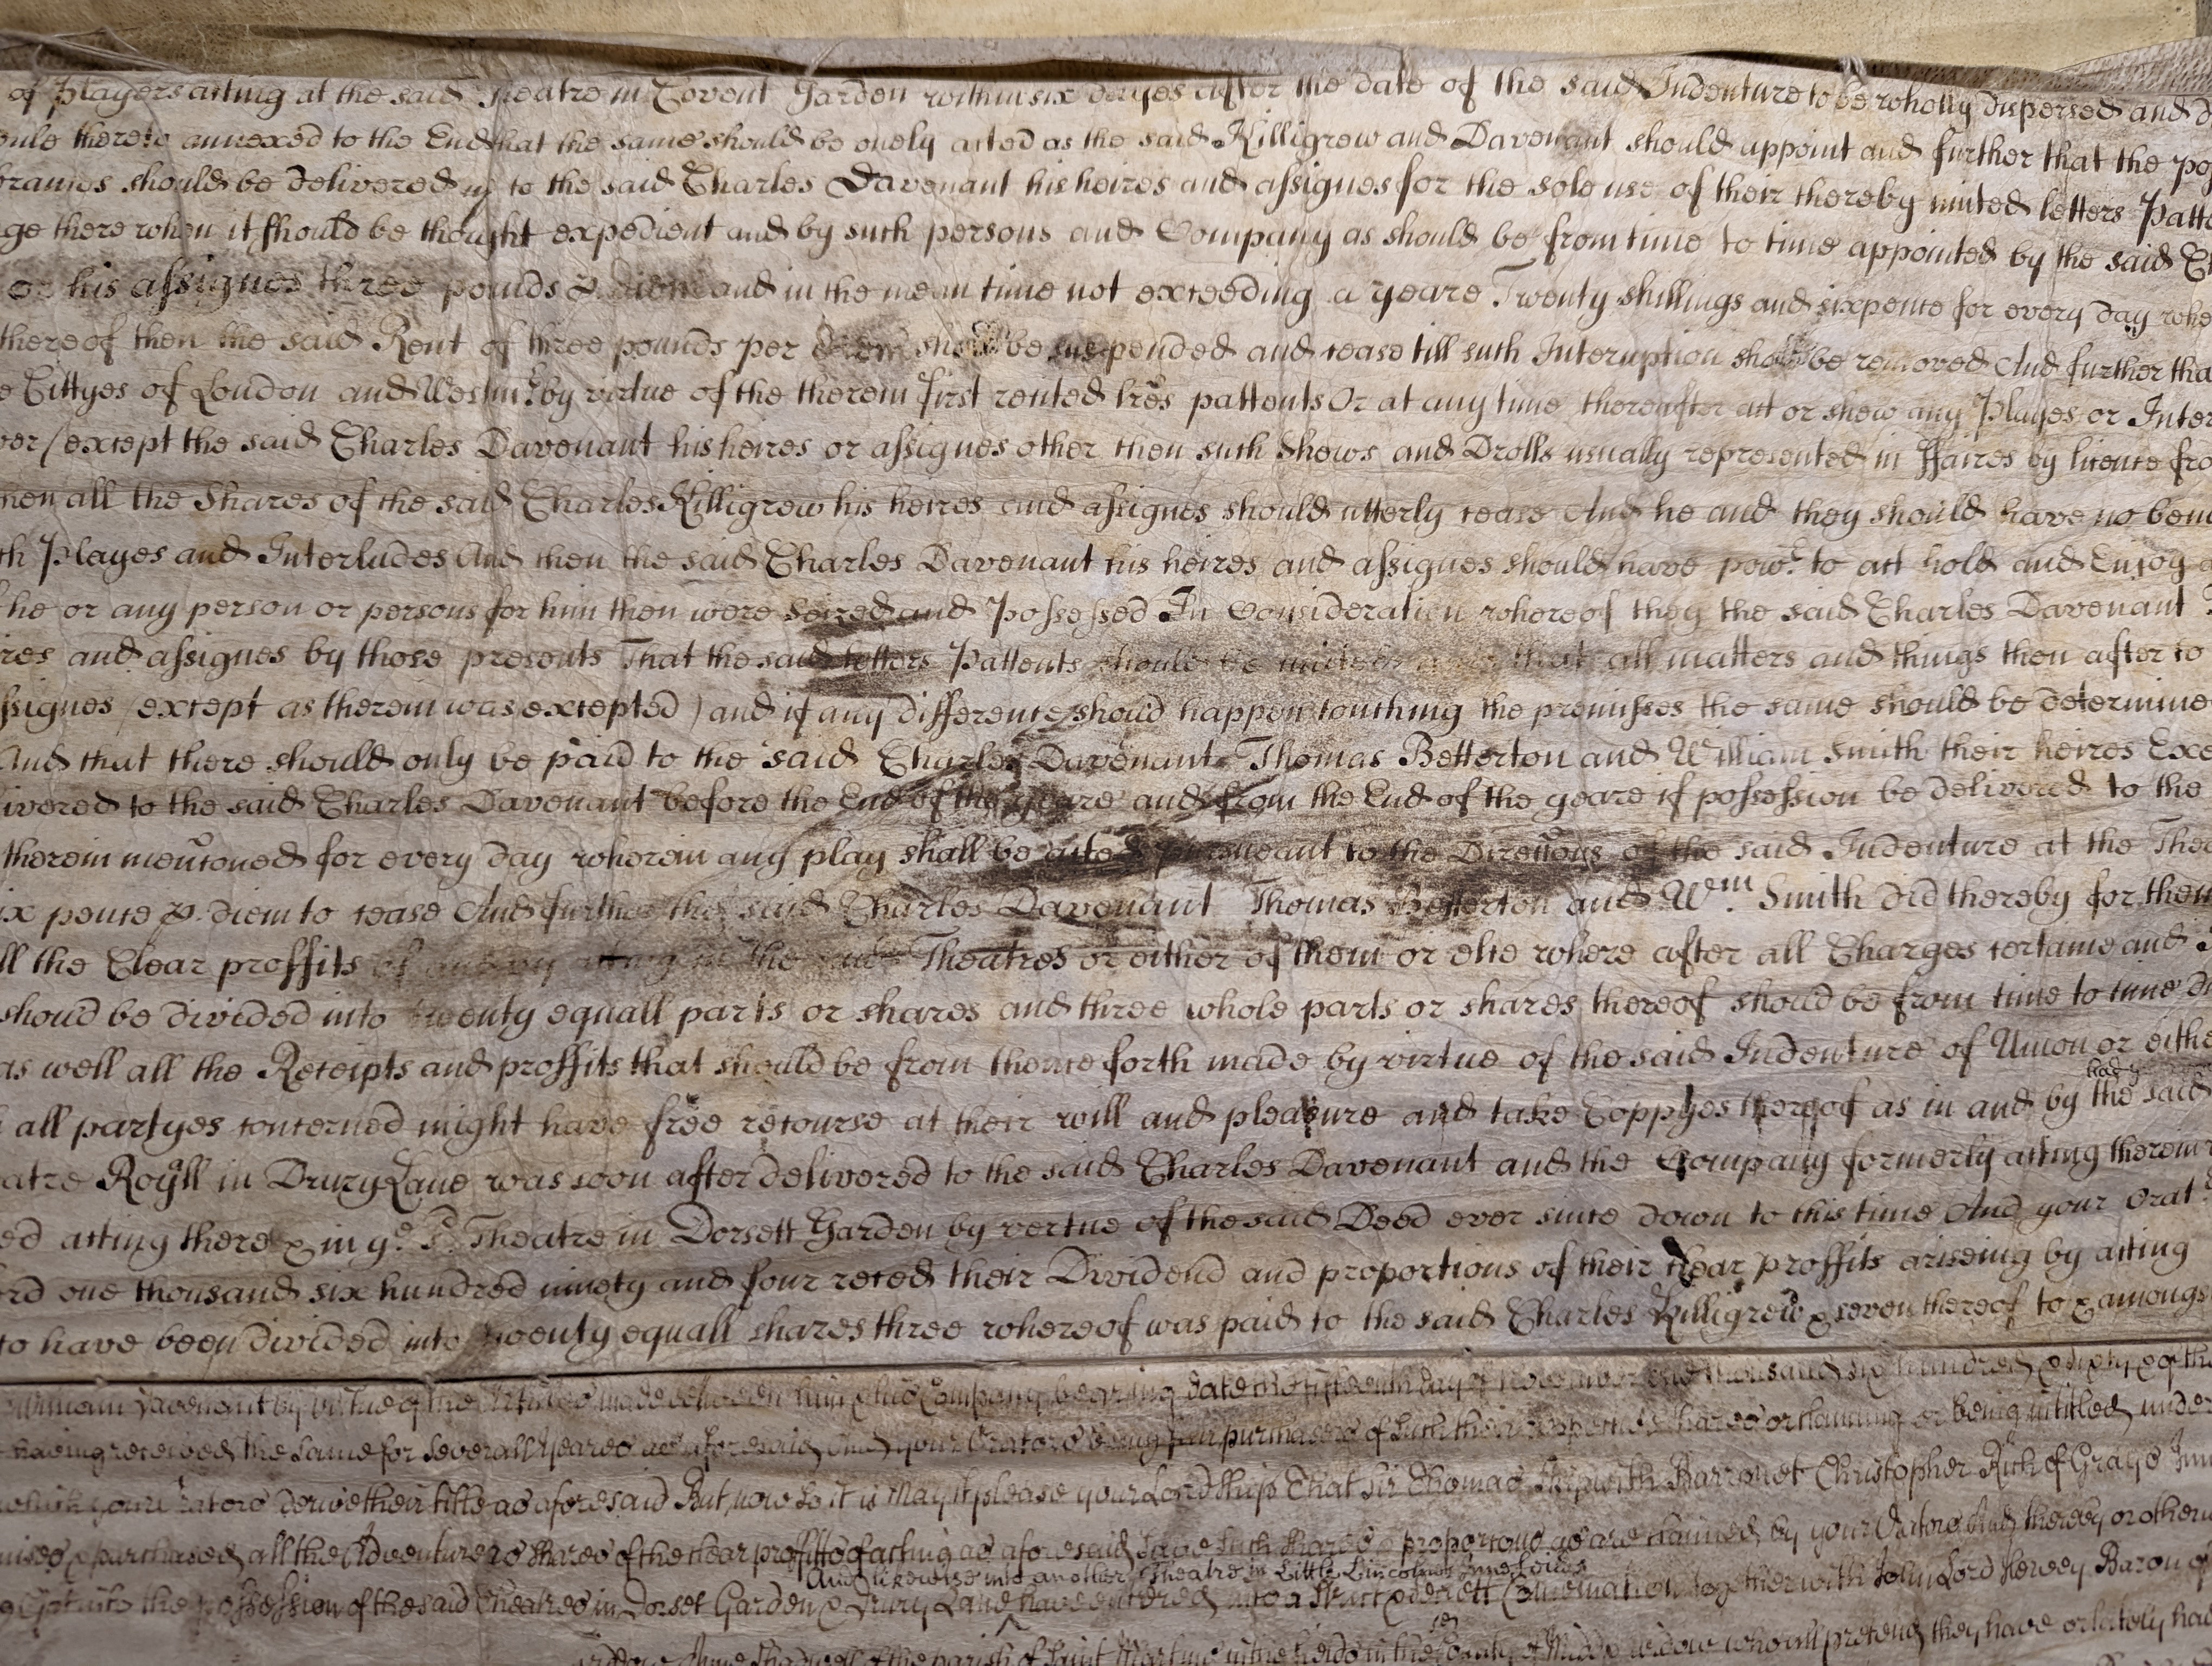 of Players acting at the said Theatre in Covent Garden within six dayes after the date of the said Indenture to be wholly dispersed and
thereto annexed to the End that the same should be onely acted as the said Killigrew and Davenant should appoint and further that the
should be delivered up to the said Charles Davenant his heires and assignes for the sole use of their thereby united letters
there when it should be thought expedient and by such persons and Company as should be from time to time appointed by the said
or his assignes three pounds and in the mean time not exceeding a yeare Twenty shillings and sixpence for every day
thereof then the said Rent of three pounds per diem should be suspended and cease till such Interuption should be removed And further
Cittyes of London and Westmr. by virtue of the therein first recited lres pattents Or at any time thereafter act or shew any Playes or
(except the said Charles Davenant his heires or assignes other then such Shows and Drolls usually represented in ffaires by licence
all the Shares of the said Charles Killigrew his heires and assignes should utterly cease And he and they should have no
Playes and Interludes And then the said Charles Davenant his heires and assignes should have powr. to act hold and Enjoy
he or any person or persons for him then were seized and Possessed In Consideration whereof they the said Charles Davenant
and assignes by those presents That the said letters Pattents should be united that all matters and things then after to
(except as therein was excepted) and if any difference shoud happen touching the premisses the same should be
And that there should only be paid to the said Charles Davenant Thomas Betterton and William Smith their heires
to the said Charles Davenant before the End of the yeare and from the End of the yeare if possession be delivered to the
therein menc̃oned for every day wherein any play shall be acted pursueant to the Direcc̃ons of the said Indenture at the
pence p. diem to cease And further the said Charles Davenant Thomas Betterton and Wm. Smith did thereby for
the Clear proffits of acting in the said Theatres or either of them or else where after all Charges certaine and
shoud be divided into twenty equall parts or shares and three whole parts or shares thereof shoud be from time to time
as well all the Receipts and proffits that should be from thence forth made by virtue of the said Indenture of Union or
all partyes concerned might have free recourse at their will and pleasure and take Coppyes thereof as in and by the said
Royll in Drury Lane was soon after delivered to the said Charles Davenant and the Company formerly acting therein
acting there & in ye. sd. Theatre in Dorsett Garden by vertue of the said Deed ever since down to this time And your
one thousand six hundred ninety and four reced their Dividend and proportions of their clear proffits ariseing by acting
to have been divided into twenty equall shares three whereof was paid to the said Charles Killigrew & seven thereof to &
Davenant by virtue of the made between him & his Company bearing date the fifteenth day of November one thousand six hundred & sixty & of
having received the same for severall yeares as aforesaid And your Orators being purchasers of such their respective shares or claiming or being intitled under
your Orators derive their title as aforesaid But now so it is May it please your Lordship That Sir Thomas Skipwith Barronet Christopher Rich of Grays
& purchased all the Adventurers shares of the clear proffitts of acting as aforesaid save such shares & proportions as are claimed by your Orators And thereby
And likewise into another Theatre in Little Lincolns Inne
the possession of the said Theatres in Dorset Garden & Drury Lane have entered into a strict & secrett together with John Lord Hervey Baron of
of the parish of Saint Martins in the feilds in the County of Middx widow who all pretend they have or lately